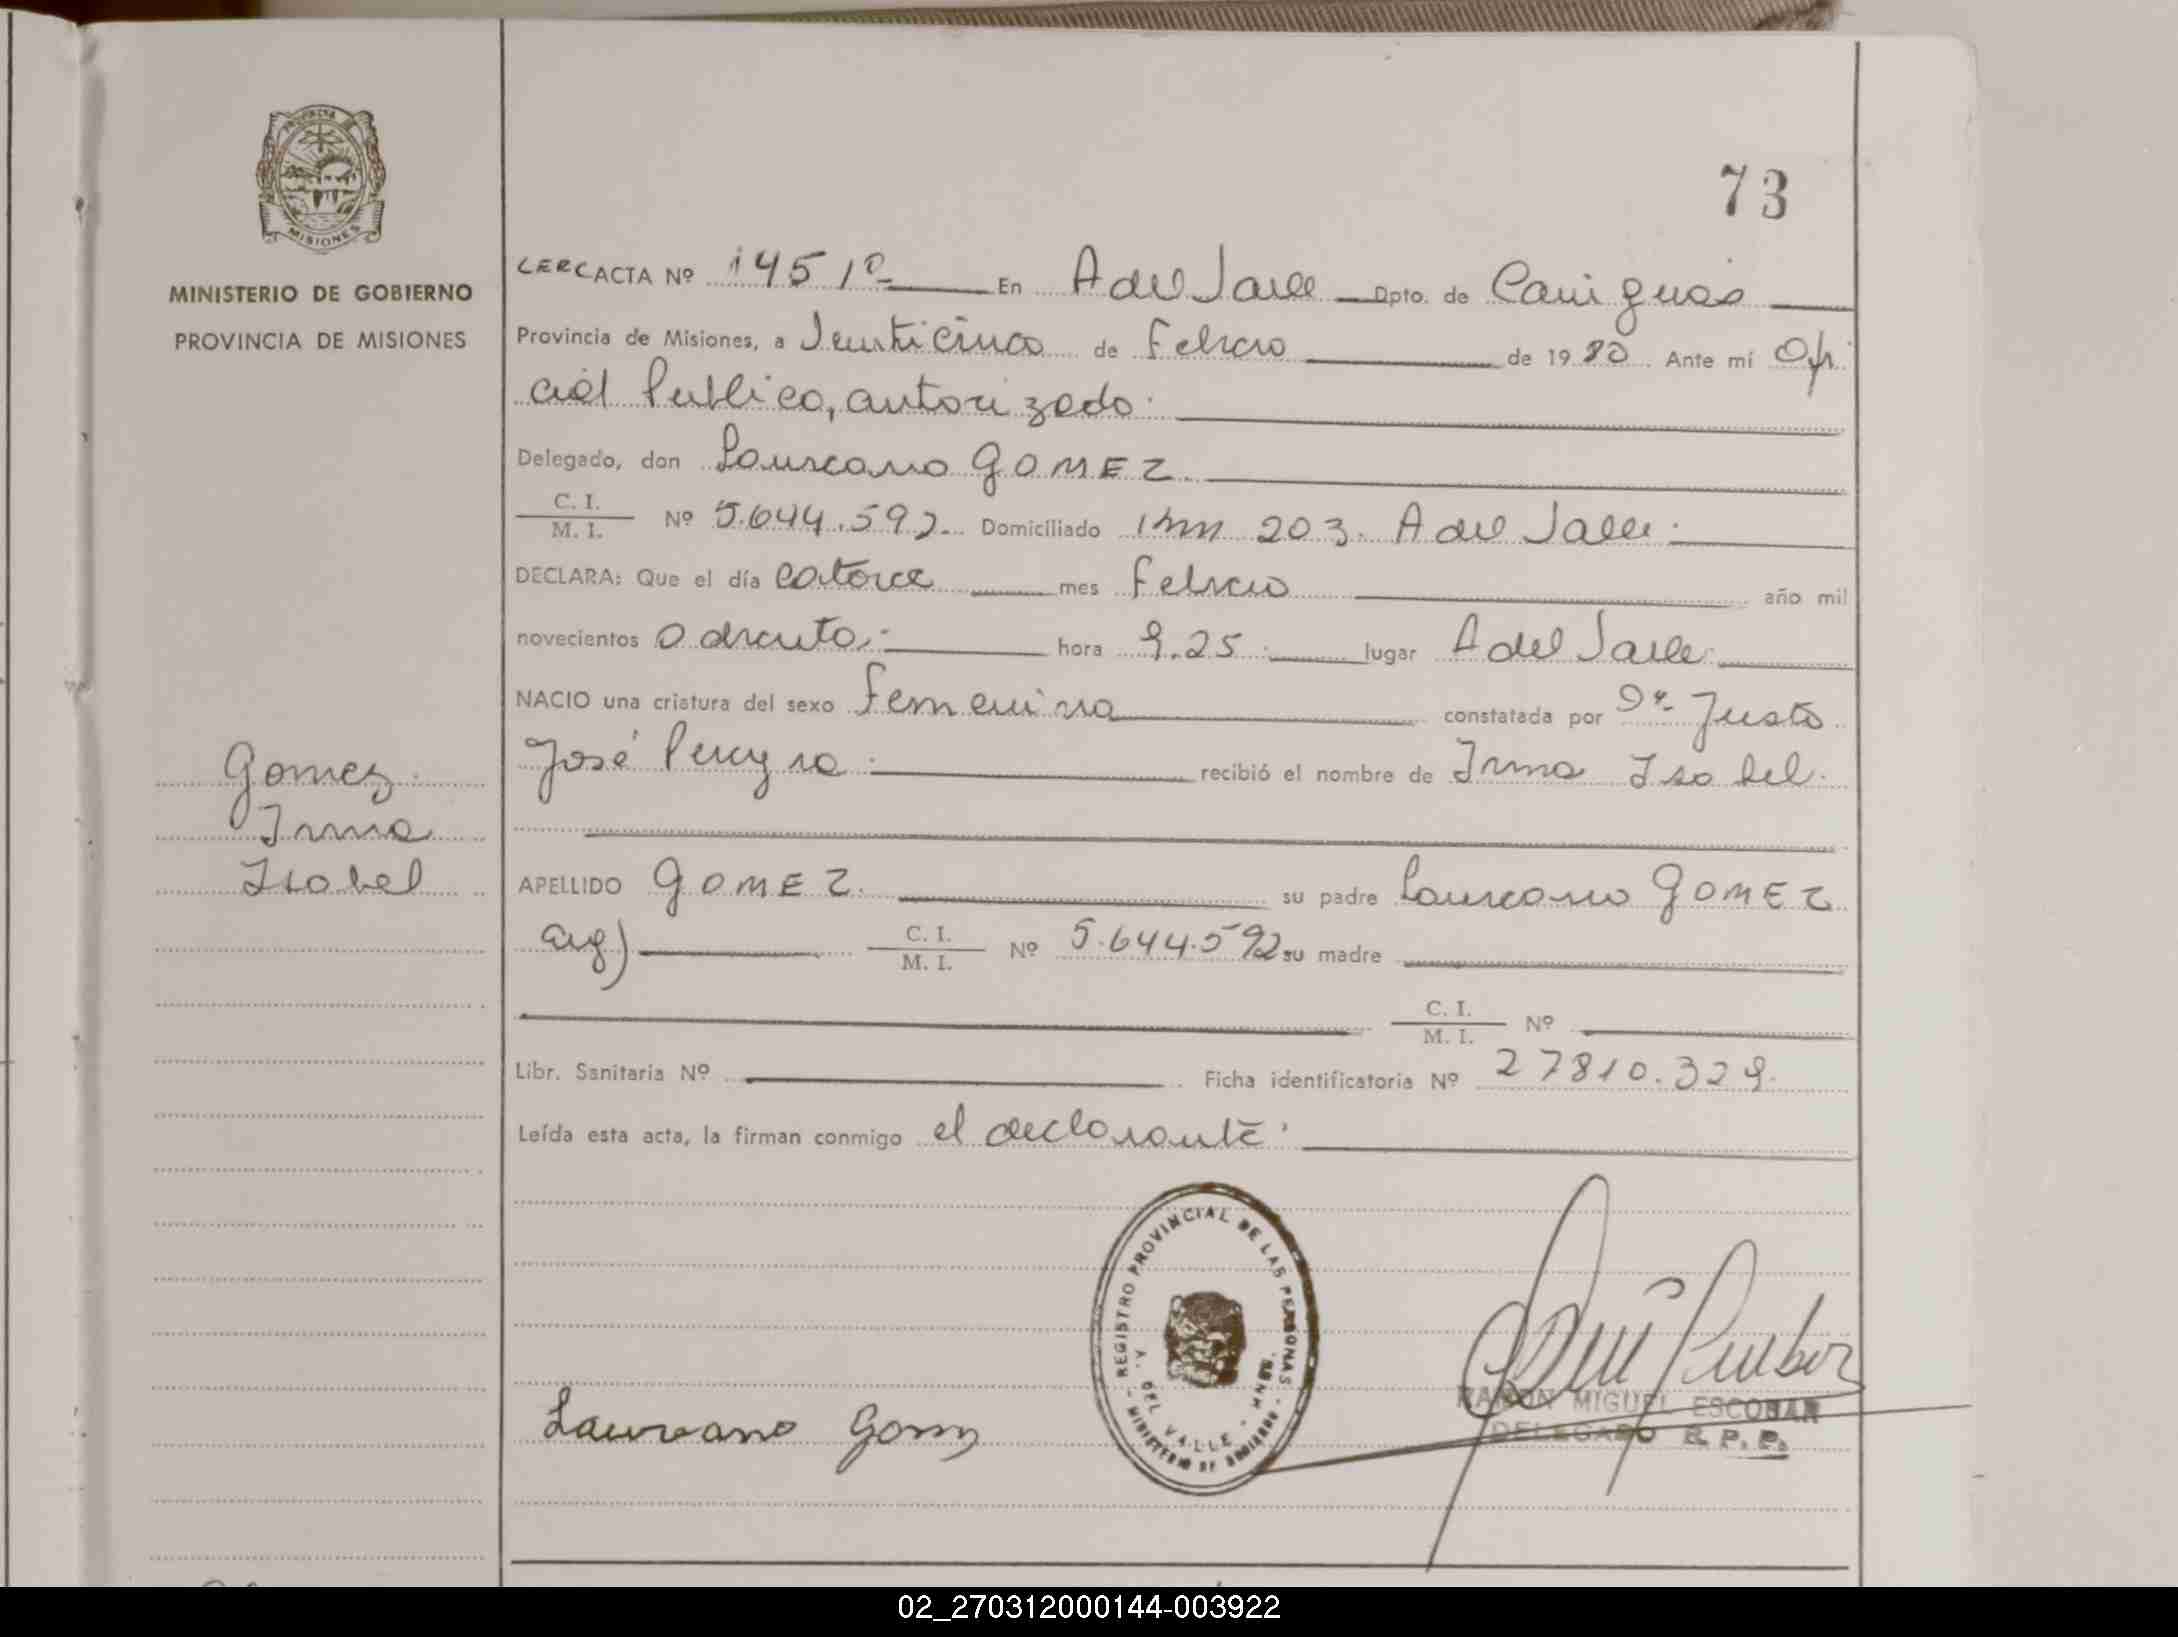 PROVINCIA
MISIONES
MINISTERIO DE GOBIERNO
PROVINCIA DE MISIONES
Gomez
Irma
Isobel
73
ACTA Nº 145 1º En A del Valle Dpto. de Cainguás
Provincia de Misiones, a Veinticinco de Febrero de 1980. Ante mí Ofi
cial Publico, autorizado.
Delegado, don Laureano GOMEZ.
C. I.
M. I. Nº 5.644.592. Domiciliado 203. A del Valle.
DECLARA: Que el día catorce mes Febrero año mil
novecientos Ochenta. hora 9.25. lugar A del Valle.
NACIO una criatura del sexo Femenina constatada por Dr. Justo
José Pereyra. recibió el nombre de Irma Isabel.
APELLIDO GOMEZ. su padre Laureano GOMEZ
arg) C. I.
M. I. Nº 5.644.592 su madre
C. I.
M. I. Nº
Libr. Sanitaria Nº Ficha identificatoria Nº 27810.329.
Leída esta acta, la firman conmigo el declarante.
REGISTRO PROVINCIAL DE LAS PERSONAS
A. DEL VALLE
MINISTERIO DE GOBIERNO
Laureano Gomez
RAMON MIGUEL ESCOBAR
DELEGADO R. P. P.
02_270312000144-003922